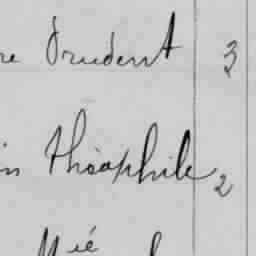 re Prudent 3
in Théophile 2